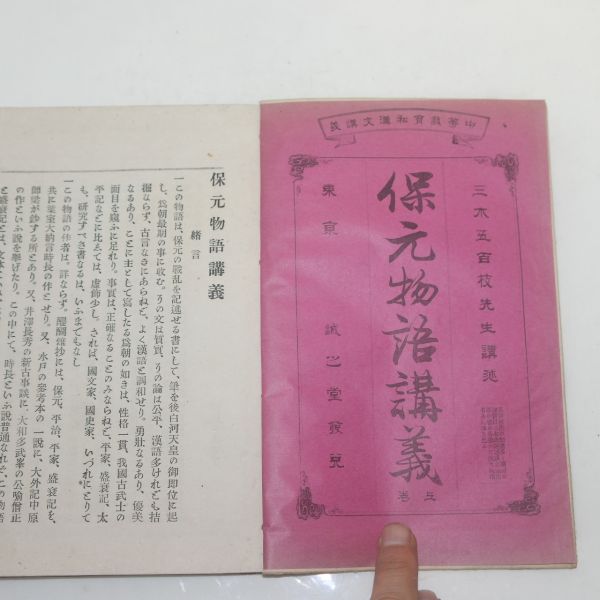 中等教育和漢文講義
三木五百枝先生講述
保元物語講義
上卷
東京 誠之堂發兌
保元物語講義
緒言
一この物語は、保元の戰乱を記述せる書にして、筆を後白河天皇の御即位に起
し、爲朝最期の事に收む。その文は質實、その論は公平、漢語多けれども拮
掘ならず、古言なきにあらねど、よく漢語と調和せり。勇壯なるあり、優美
なるあり、ことに主として寫したる爲朝の如きは、性格一貫、我國古武士の
面目を窺ふに足れり。事實は、正確なることのみならねど、平家、盛衰記、太
平記などに比ゑては、虛飾少し。されば、國文家、國史家、いづれにとりて
も、研究すべき書なるは、いふまでもなし
一この物語の作者は、詳ならず。醍醐雜抄には、保元、平治、平家、盛衰記を、
共に葉室大納言時長の作とせり。又、水戸の參考本の一說に、大外記中原
師梁が鈔する所とあり。又、井澤長秀の新古事談に、大和多武峯の公喩僧正
の作といふ說を擧げたり。この中にて、時長といふ說普通なれど、この物語